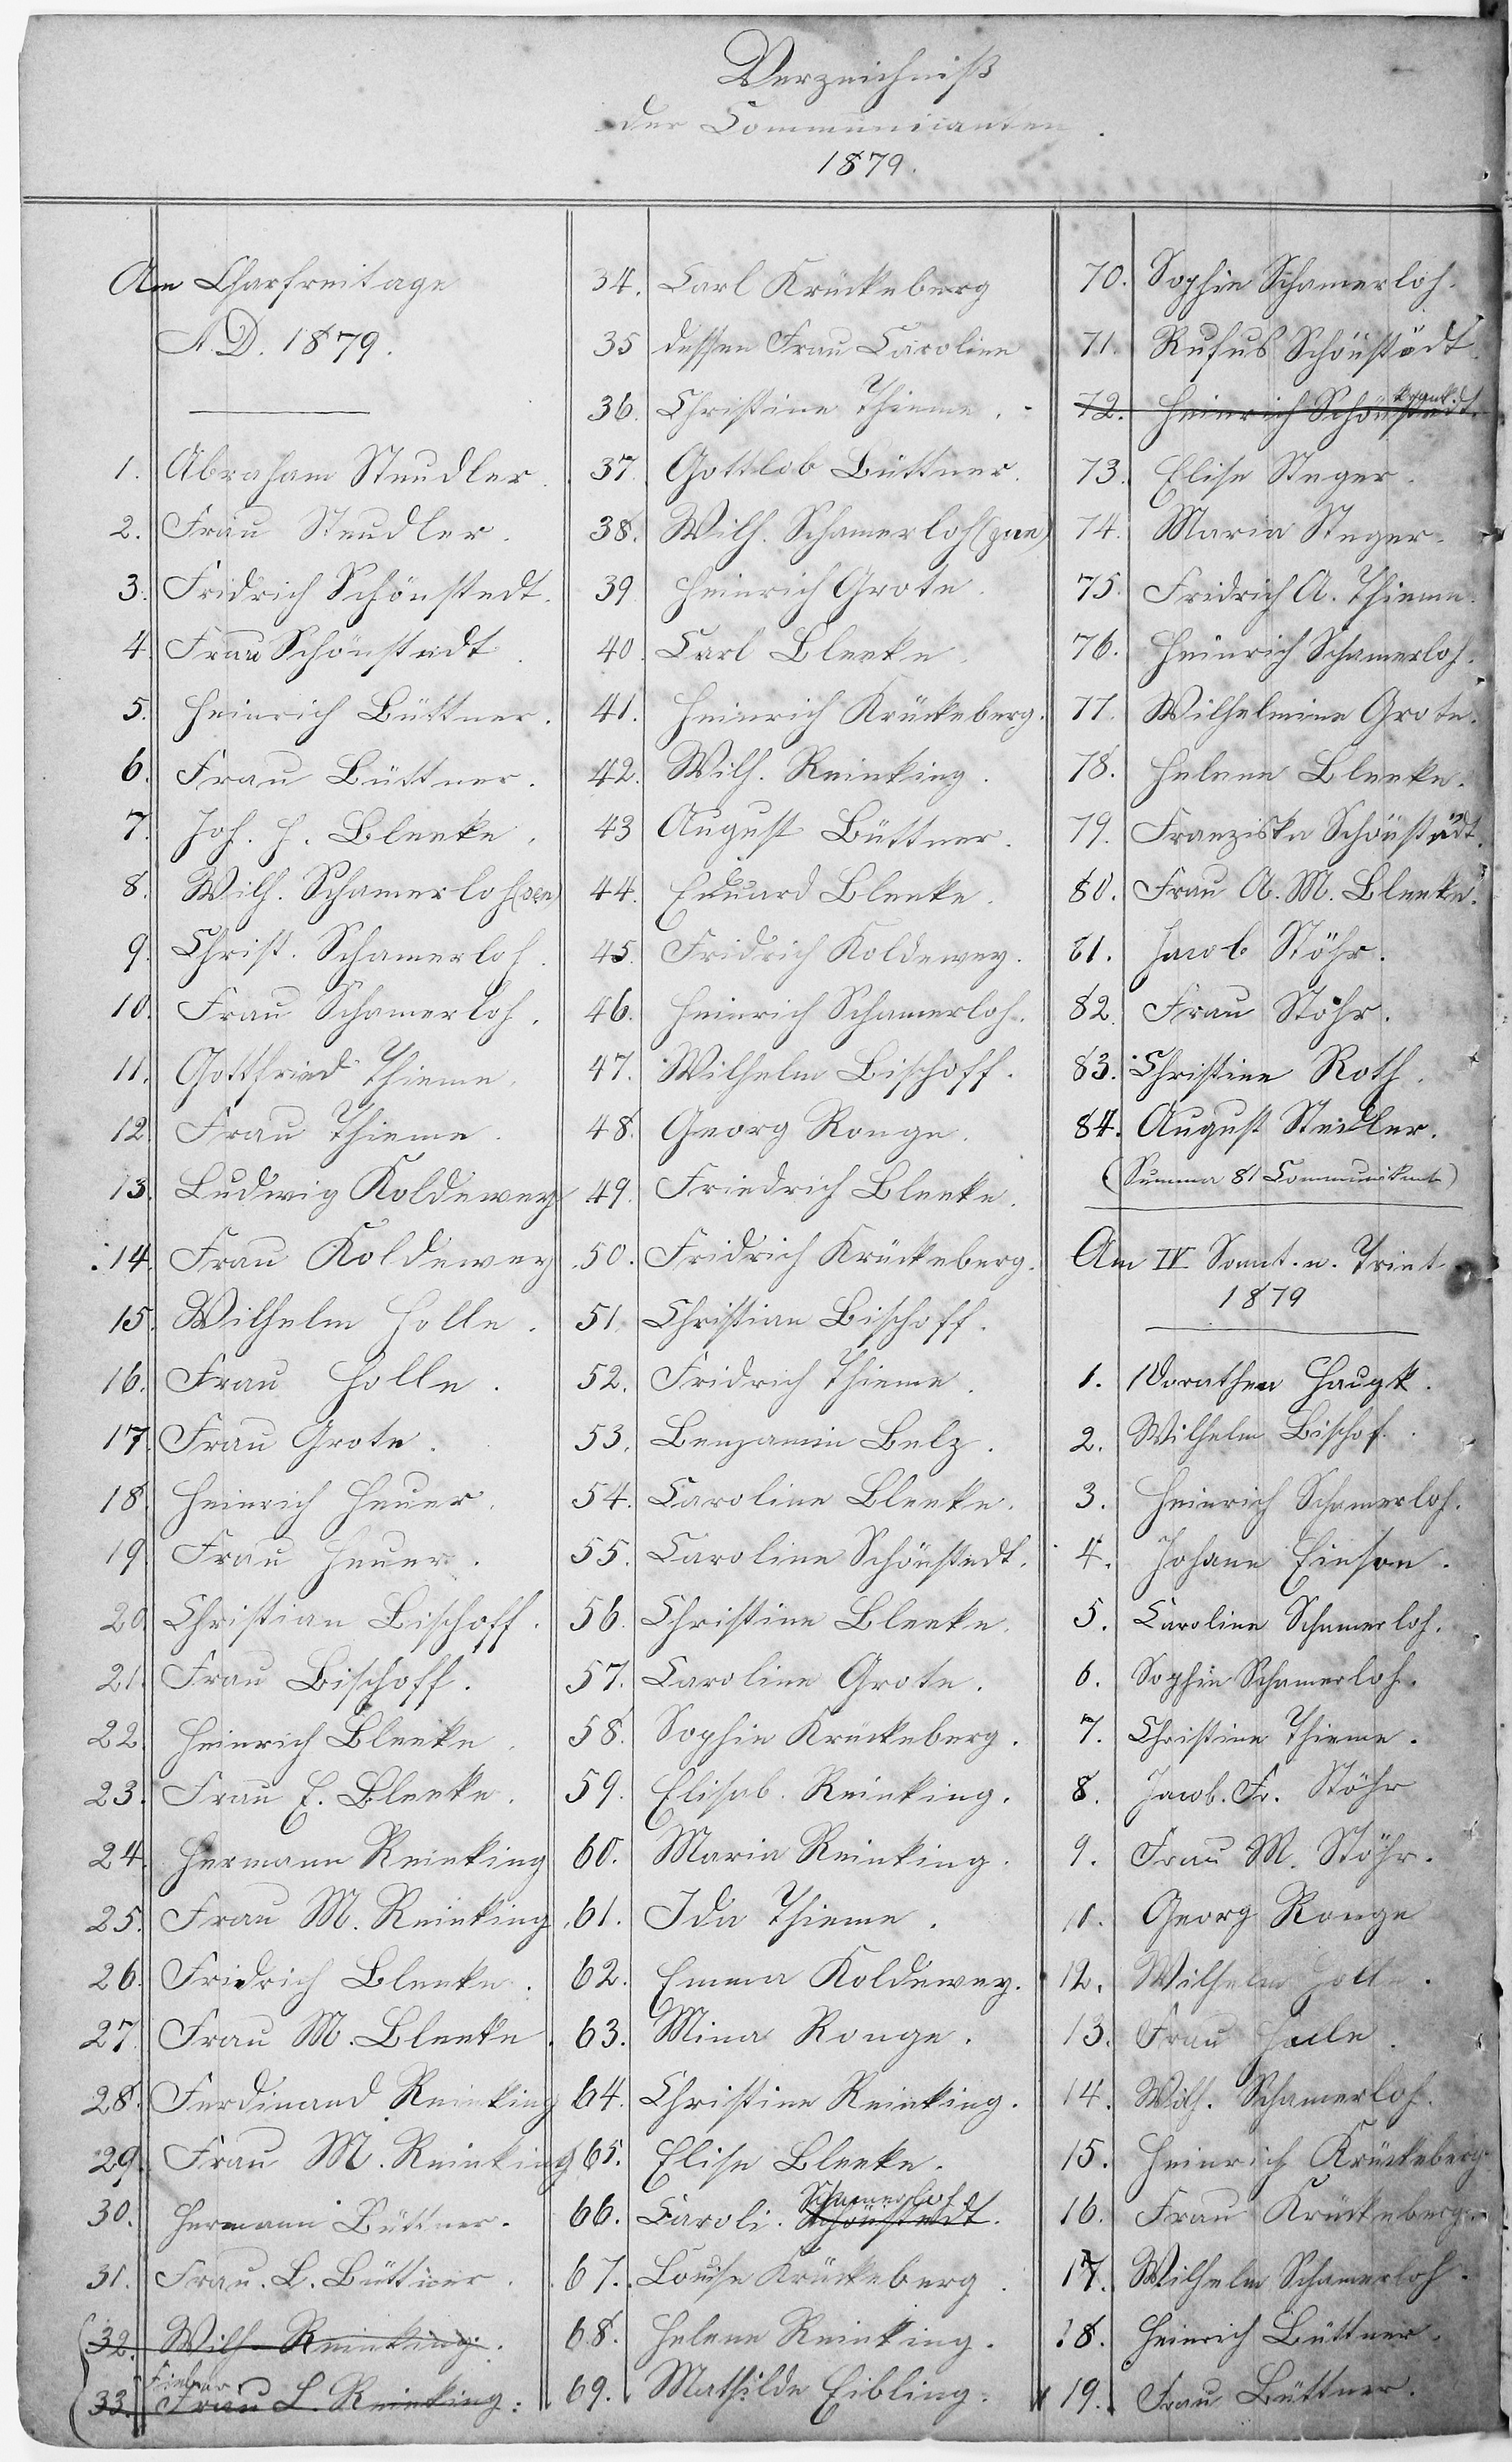 Verzeichniß
der Communicanten.
1879.
Am Charfreitage
A. D. 1879.
1. Abraham Steudler.
2. Frau Steudler.
3. Fridrich Schönstedt.
4. Frau Schönstedt.
5. Heinrich Büttner.
6. Frau Büttner.
7. Joh. H. Bleeke.
8. Wilh. Schamerloh (sen)
9. Christ. Schamerloh.
10. Frau Schamerloh.
11. Gottfried Thieme.
12. Frau Thieme.
13. Ludwig Koldewey
14. Frau Koldewey
15. Wilhelm Holle.
16. Frau Holle.
17. Frau Grote.
18. Heinrich Heuer.
19. Frau Heuer.
20. Christian Bischoff.
21. Frau Bischoff.
22. Heinrich Bleeke.
23. Frau E. Bleeke.
24. Hermann Reinking
25. Frau M. Reinking
26. Fridrich Bleeke.
27. Frau M. Bleeke.
28. Ferdinand Reinking
29. Frau M. Reinking
30. Hermann Büttner.
31. Frau. L. Büttner.
32. Wilh. Reinking.
33. Frau L. Reinking.
34. Carl Krückeberg
35 dessen Frau Caroline
36. Christine Thieme.
37. Gottlob Büttner.
38. Wilh. Schamerloh (jun)
39 Heinrich Grote.
40. Carl Bleeke.
41. Heinrich Krückeberg.
42. Wilh. Reinking.
43 August Büttner.
44. Eduard Bleeke.
45. Fridrich Koldewey.
46. Heinrich Schamerloh.
47. Wilhelm Bischoff.
48. Georg Ronge.
49. Friedrich Bleeke.
50. Fridrich Krückeberg.
51. Christian Bischoff.
52. Fridrich Thieme.
53. Benjamin Belz.
54. Caroline Bleeke.
55. Caroline Schönstedt.
56. Christine Bleeke.
57. Caroline Grote.
58. Sophie Krückeberg.
59. Elisab. Reinking.
60. Maria Reinking.
61. Ida Thieme.
62. Emma Koldewey.
63. Mina Ronge.
64. Christine Reinking.
65. Elise Bleeke.
Schamerloh
66. Caroli. Schönstedt.
67. Louise Krückeberg
68. Helene Reinking.
69. Mathilde Eibling.
70. Sophie Schamerloh.
71. Rufus Schönstädt
krank.
72. Heinrich Schönstedt.
73. Elise Steger.
74. Maria Steger.
75. Fridrich A. Thieme.
76. Heinrich Schamerloh.
77. Wilhelmine Grote.
78. Helene Bleeke.
79. Franziska Schönstädt.
80. Frau A. M. Bleeke.
81. Jacob Stöhr.
82. Frau Stöhr.
83. Christine Roth.
84. August Steidler.
(Summa 81 Communikant)
Am IV Sonnt. n. Trint
1879
1. Dorathea Haugk.
2. Wilhelm Bischof.
3. Heinrich Schamerloh.
4. Johann
5. Caroline Schamerloh.
6. Sophie Schamerloh.
7. Christine Thieme.
8. Jacob. Fr. Stöhr
9. Frau M. Stöhr.
11. Georg Ronge
12. Wilhelm Holle.
13. Frau Holle.
14. Wilh. Schamerloh.
15. Heinrich Krückeberg
16. Frau Krückeberg.
17. Wilhelm Schamerloh.
18. Heinrich Büttner.
19. Frau Büttner.